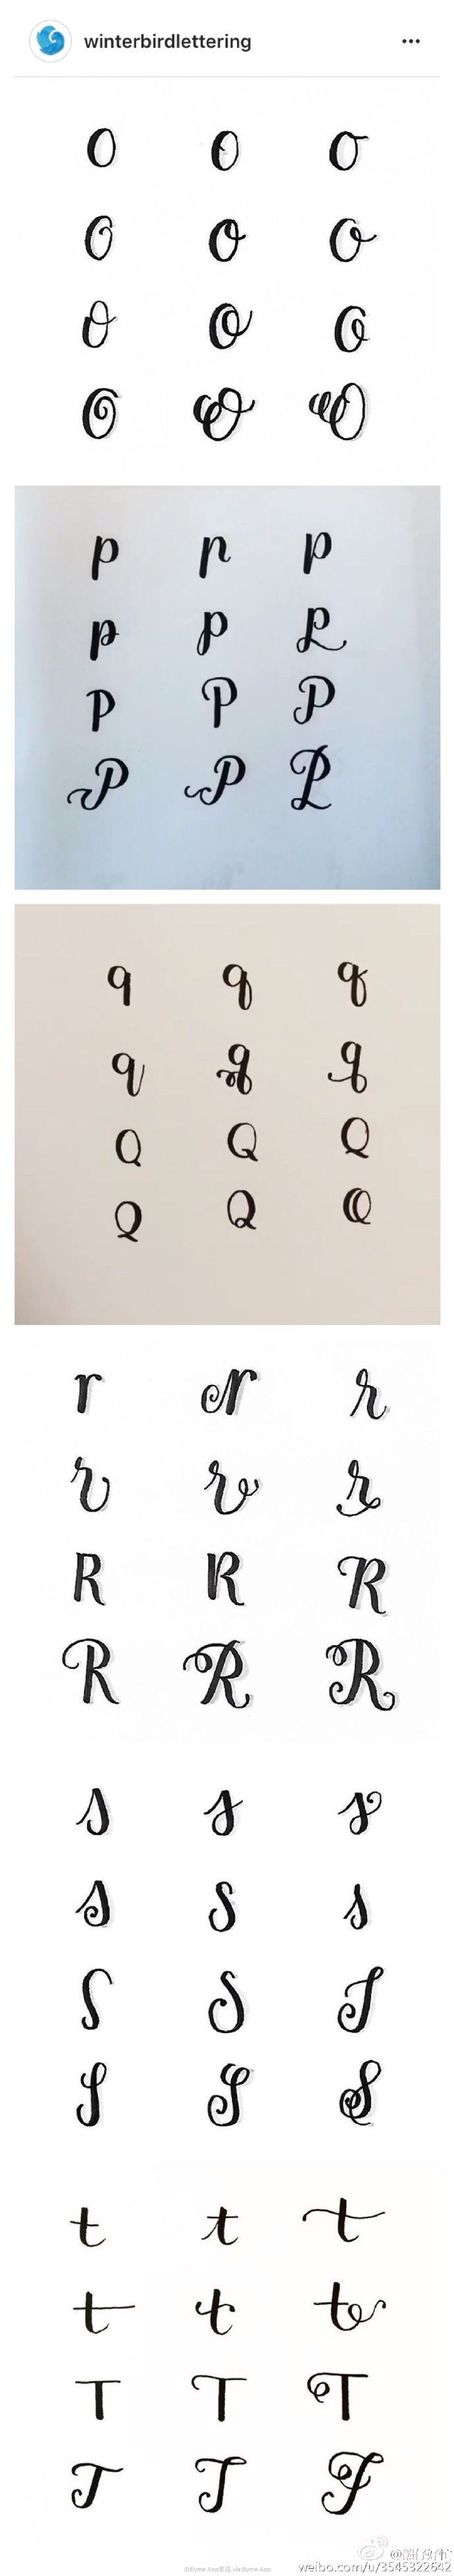 winterbirdlettering
o o o
o o o
o o o
o o o
p p p
p p p
P P P
P P P
q q q
q q q
Q Q Q
Q Q Q
r r r
r r r
R R R
R R R
s s s
s s s
S S S
S S S
t t t
t t t
T T T
T T T
weibo.com/u/3545322642